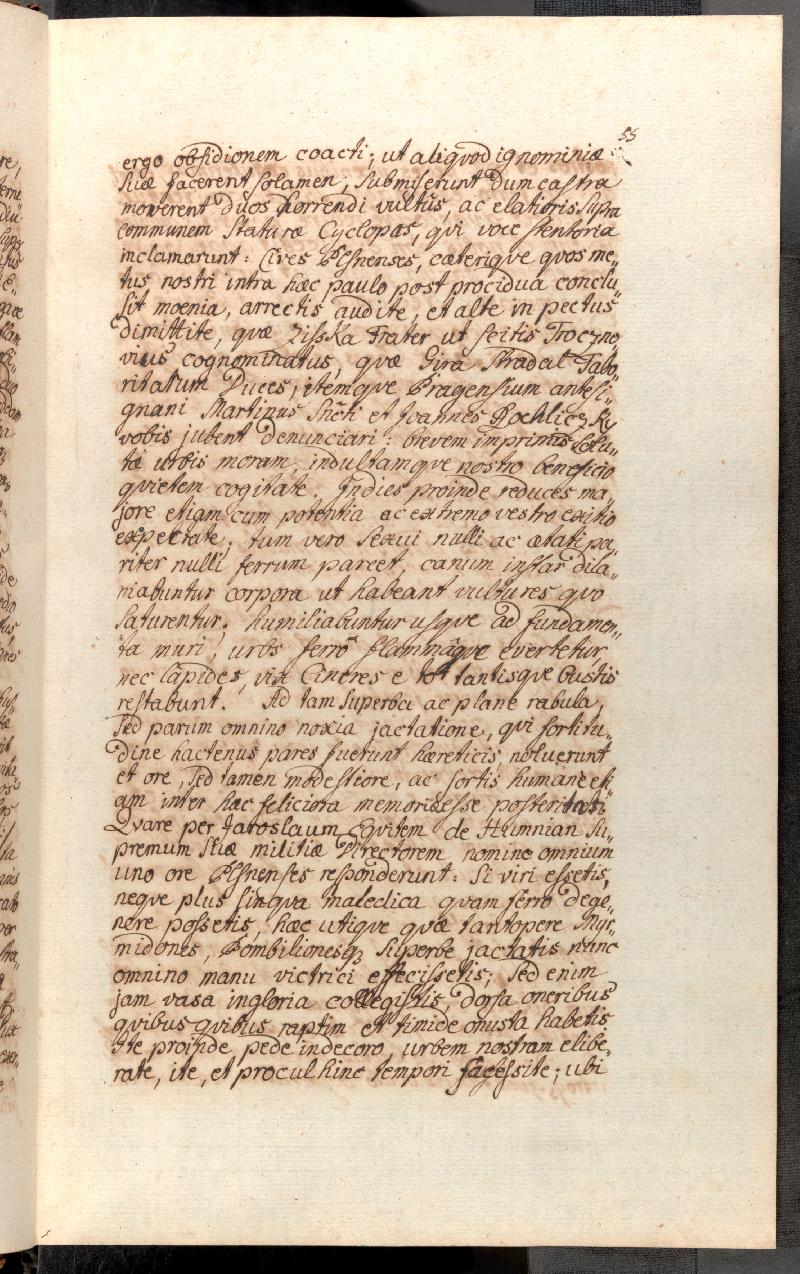 55
ergo obsidionem coacti; ut aliqvod ignominiæ
suæ facerent solamen; submiserunt dum castra
moverent duos horrendi vultus, ac elatioris supra
communem staturæ Cyclopas, qvi voce stentoria
inclamarunt: Cives Plsnenses, cæteriqve qvos me„
tus nostri intra hæc paulo post procidua conclu„
sit moenia, arrectis audite, et alte in pectus
dimittite, qvæ Zisska Frater ut scitis Troczno„
vius cognominatus, qvæ Gira Stradal Tabo„
ritarum Duces, itemqve Pragensium antesi„
gnani Martinus et Joannes Rochliczky
vobis jubent denunciari: brevem imprimis
tæ urbis moram, indultamqve nostro beneficio
qvietem cogitate. Indies proinde reduces ma„
jore etiam cum potentia ac extremo vestro exitio
expectate; tum vero sexui nulli ac ætati pa„
riter nulli ferrum parcet, canum instar dila„
niabuntur corpora ut habeant vultures qvo
saturentur. humiliabuntur usqve ad fundamen„
ta muri, urbs ferrô flammâqve evertetur,
nec lapides, vix Cineres e tot tantisqve bustis
restabunt. Ad tam superba ac plane rabula,
sed parum omnino noxia jactatione, qvi fortitu„
dine hactenus pares fuerunt hæreticis, noluerunt
et ore, sed tamen modestiore, ac sortis humanæ eti„
am inter hæc feliciora memores esse posteritati.
Qvare per Jaroslaum Eqvitem de Humnian su„
premum suæ militiæ Directorem nomine omnium
uno ore Plsnenses responderunt: Si viri essetis,
neqve plus lingva maledica qvam ferro dege„
nere possetis, hæc utiqve qvæ tantopere Myr„
midones, Pombilionesq3 superbe jactatis nunc
omnino manu victrici effecissetis; sed enim
jam vasa ingloria collegistis, dorsa oneribus
qvibus qvibus raptim et timide onusta habetis
Ite proinde, pede indecoro, urbem nostram elibe„
rate, ite, et procul hinc tempori facessite; ubi